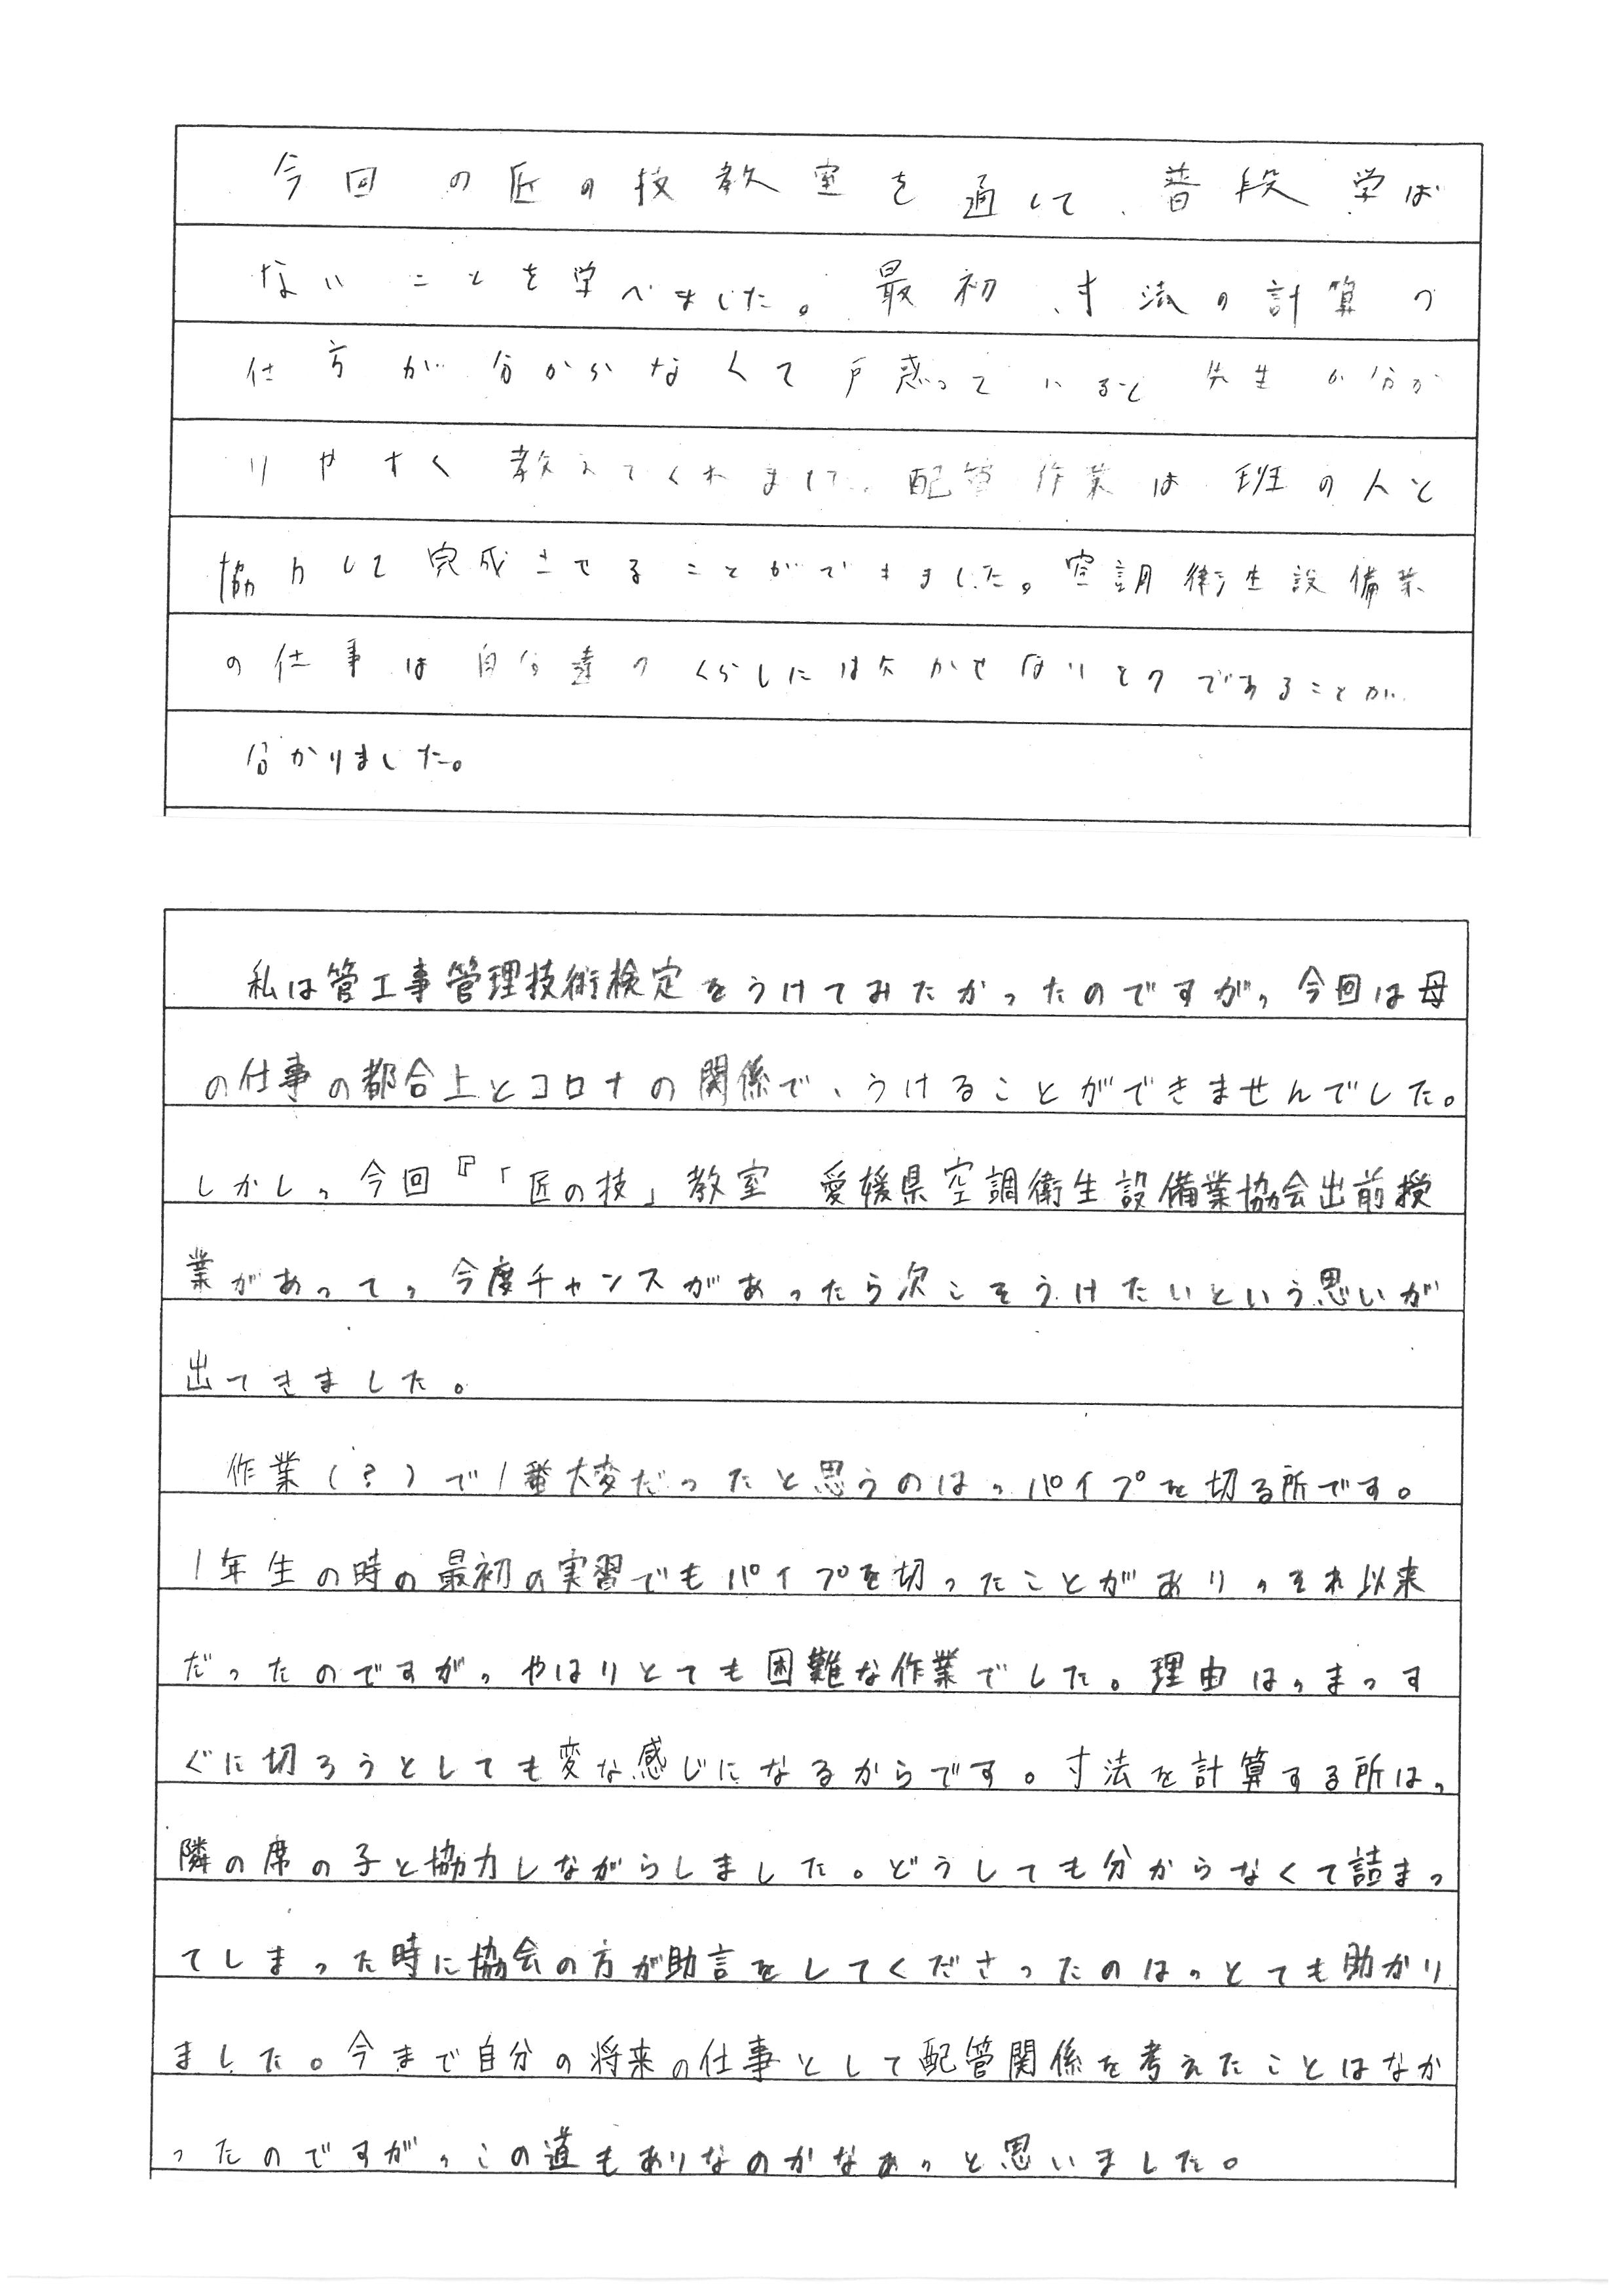 今回の匠の技教室を通して、普段学ば
ないことを学べました。最初、寸法の計算の
仕方が分からなくて戸惑っていると先生が分か
りやすく教えてくれました。配管作業は班の人と
協力して完成させることができました。空調衛生設備業
の仕事は自分達のくらしには欠かせないものであることが
分かりました。
私は管工事管理技術検定をうけてみたかったのですが、今回は母
の仕事の都合上とコロナの関係で、うけることができませんでした。
しかし、今回『「匠の技」教室　愛媛県空調衛生設備業協会出前授
業があって、今度チャンスがあったら次こそうけたいという思いが
出てきました。
作業(?)で1番大変だったと思うのは、パイプを切る所です。
1年生の時の最初の実習でもパイプを切ったことがあり、それ以来
だったのですが、やはりとても困難な作業でした。理由は、まっす
ぐに切ろうとしても変な感じになるからです。寸法を計算する所は、
隣の席の子と協力しながらしました。どうしても分からなくて詰まっ
てしまった時に協会の方が助言をしてくださったのは、とても助かり
ました。今まで自分の将来の仕事として配管関係を考えたことはなか
ったのですが、この道もありなのかなぁ、と思いました。